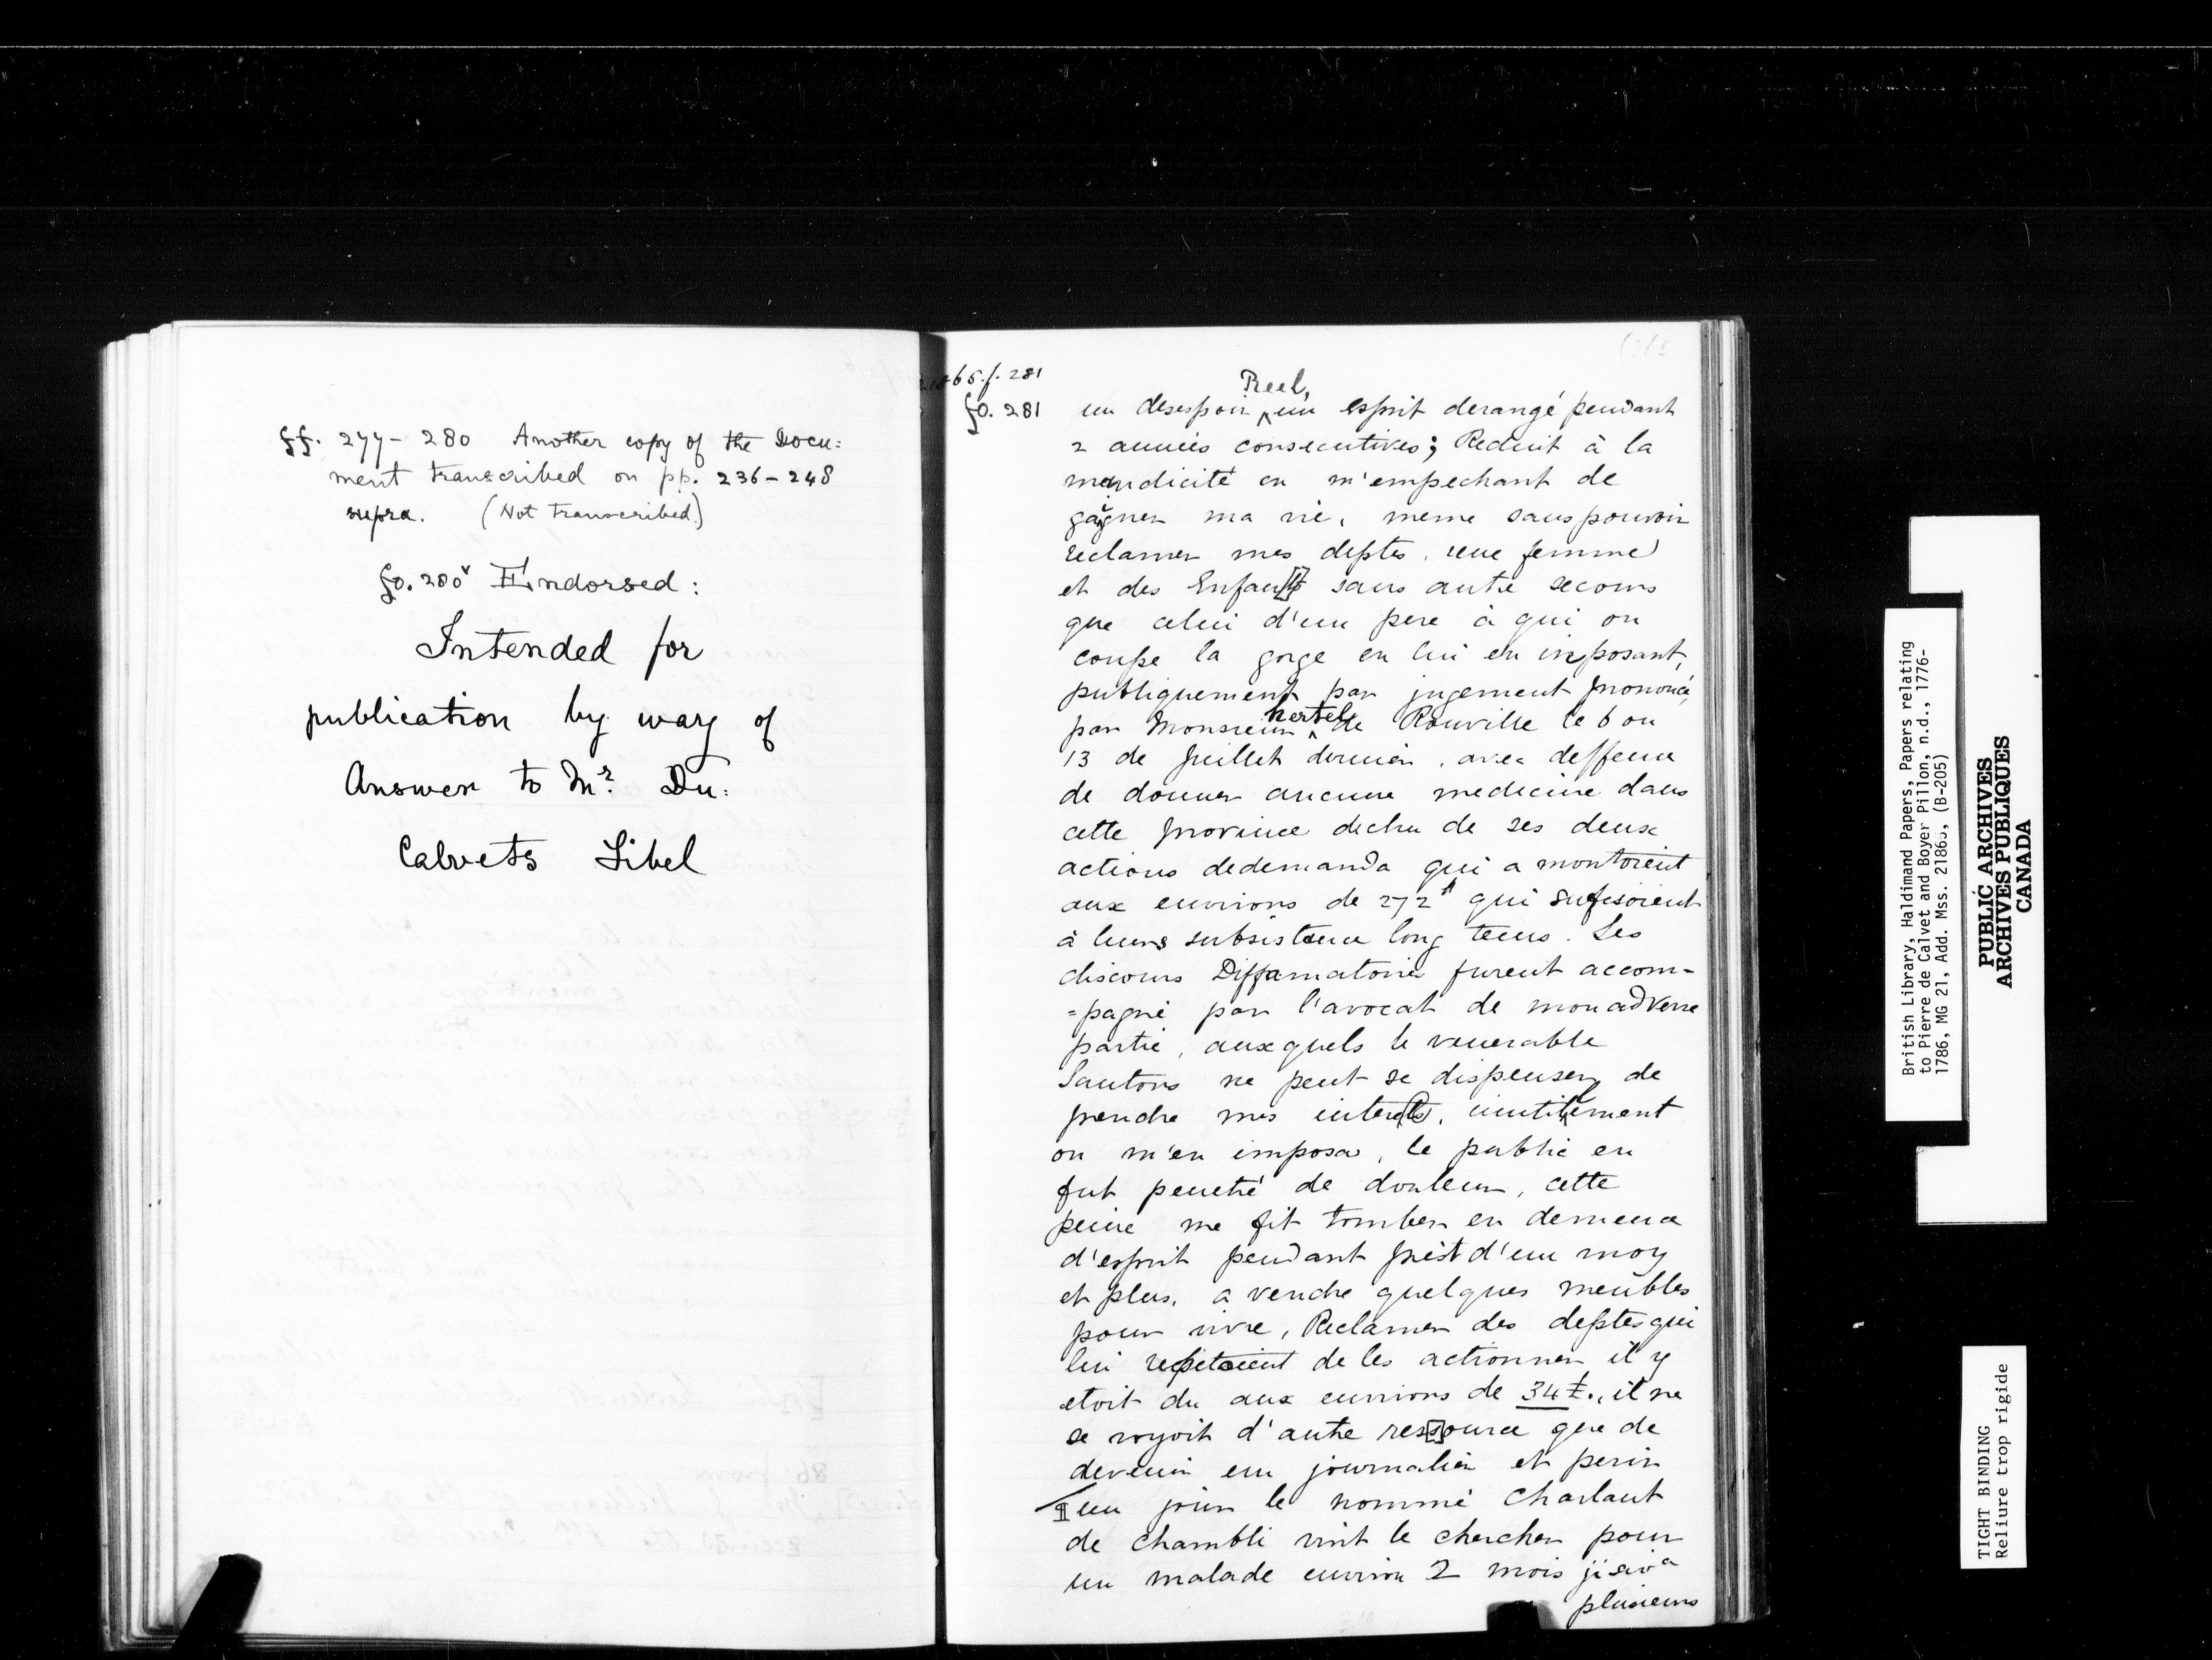 ff. 277-280 Another copy of the Docu:
ment transcribed on pp. 236-248
supra. (Not transcribed.)
fo. 280v Endorsed:
Intended for
publication by way of
Answer to Mr. Du:
Calvets Libel
21865.f.281
fo. 281
un desespoir Reel, un esprit derangé pendant
2 années consecutives; Reduit à la
mendicité en m'empechant de
gâgner ma vie, meme sans pouvoir
reclamer mes deptes, une femme
et des Enfan[t]s sans autre secours
que celui d'un pere à qui on
coupe la gorge en lui en imposant,
publiquement par jugement prononcé,
par Monsieur hertel de Rouville le 6 ou
13 de Juillet dernier, avec deffence
de donner aucune medecine dans
cette province dechu de ses deux
actions de demanda qui a montoient
aux environs de 272# qui sufisoient
à leurs subsistence long tems. Les
discours Diffamatoire furent accom-
=pagné par l'avocat de mon adverse
partie, aux quels le venerable
Sautons ne peut se dispenser de
prendre mes interets, inutilement
on m'en imposa, le public en
fut penetré de douleur, cette
peine me fit tomber en demence
d'esprit pendant prèst d'un moy
et plus, a vendre quelques meubles
pour vivre, Reclamer des deptes qui
lui repetoient de les actionner il y
etoit du aux environs de 34 ₶., il ne
se voyoit d'autre res[s]ource que de
devenir un journalier et perir
¶ un jour le nommé Charlant
de Chambli vint le chercher pour
un malade environ 2 mois
plusieurs
British Library, Haldimand Papers, Papers relating
to Pierre de Calvet and Boyer Pillon, n.d., 1776-
1786, MG 21, Add. Mss. 21865, (B-205)
PUBLIC ARCHIVES
ARCHIVES PUBLIQUES
CANADA
TIGHT BINDING
Reliure trop rigide